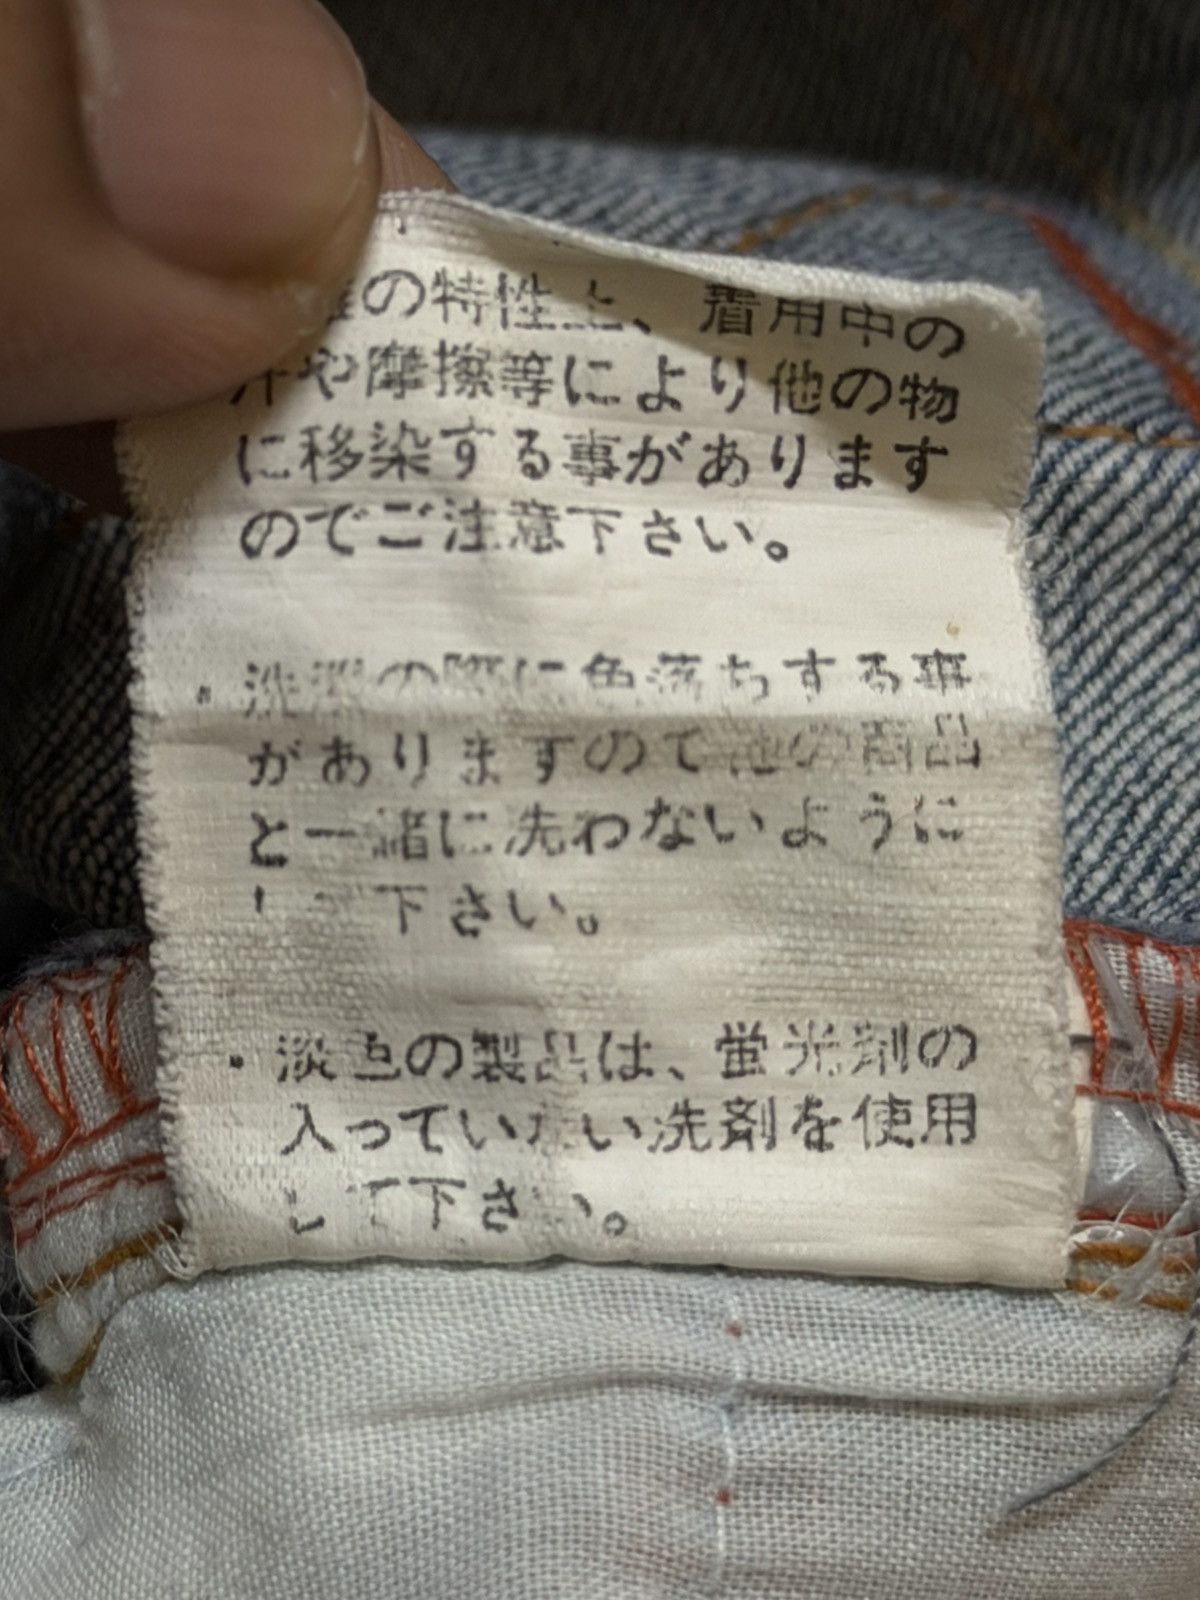 の特性上、着用中の
汗や摩擦等により他の物
に移染する事があります
のでご注意下さい。
・洗濯の際に色落ちする事
がありますので他の商品
と一緒に洗わないように
して下さい。
・淡色の製品は、蛍光剤の
入っていない洗剤を使用
して下さい。